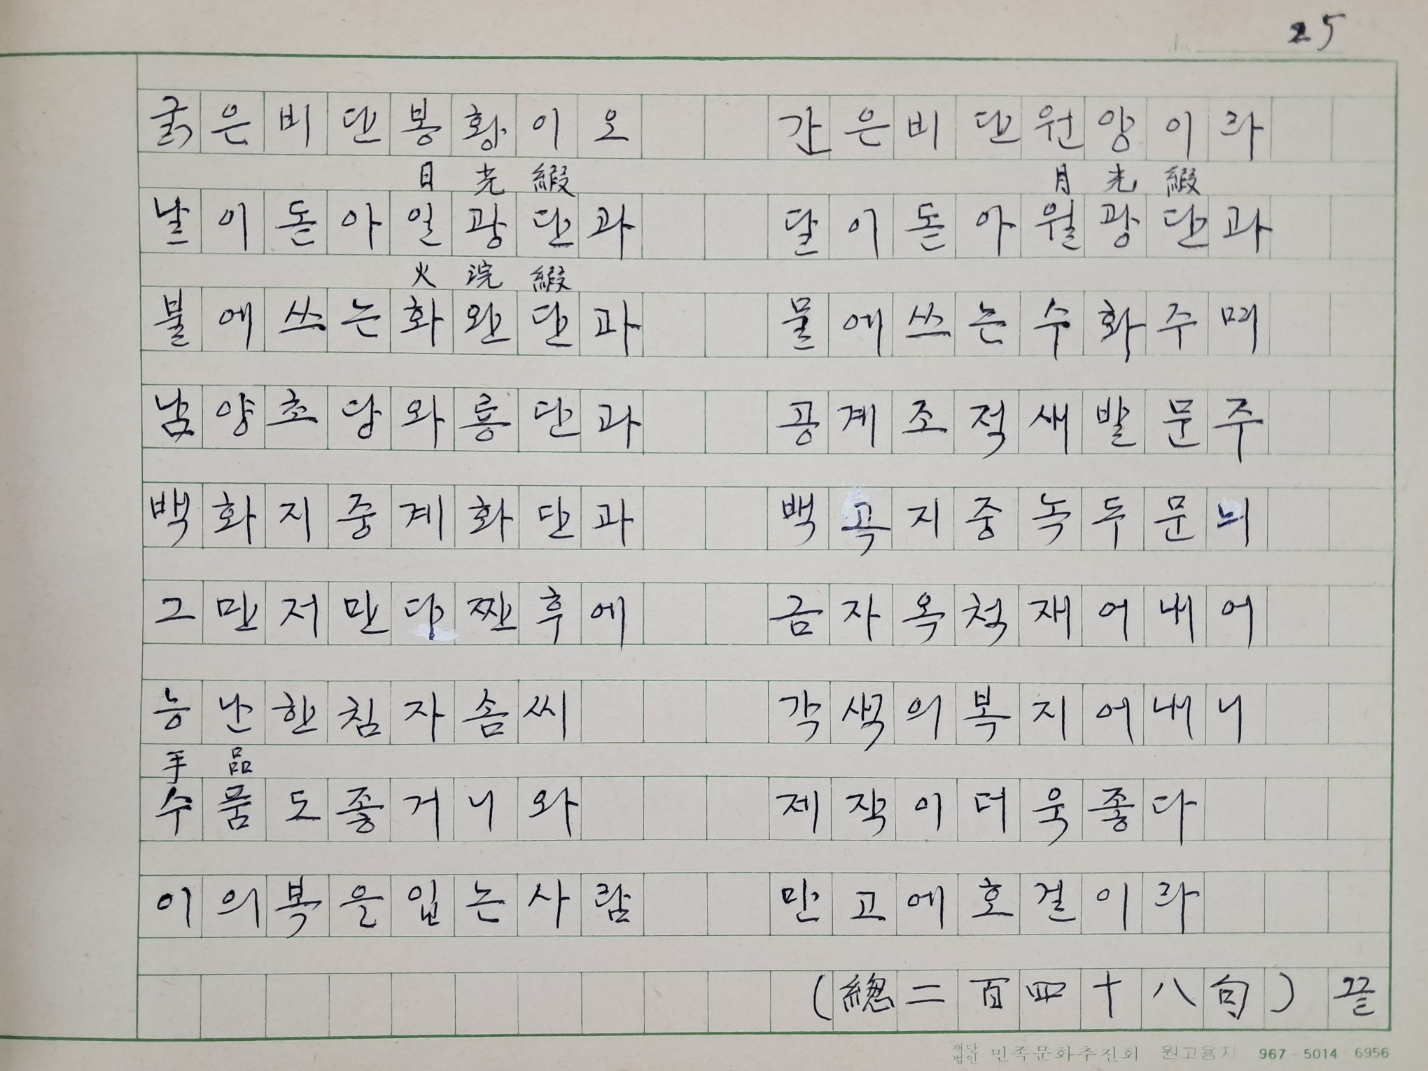 25
굵은비단봉황이오 간은비단원양이라
日光緞 月光緞
날이돋아일광단과 달이돋아월광단과
火浣緞
불에쓰는화완단과 물에쓰는수화주며
남양초당와룡단과 공계조적새발문주
백화지중계화단과 백곡지중녹두문늬
그만저만다짠후에 금자옥척재어내어
능난한침자솜씨 각색의복지어내니
手品
수품도좋거니와 제작이더욱좋다
이의복을입는사람 만고에호걸이라
(總二百四十八句) 끝
재단법인 민족문화추진회 원고용지 967-5014·6956